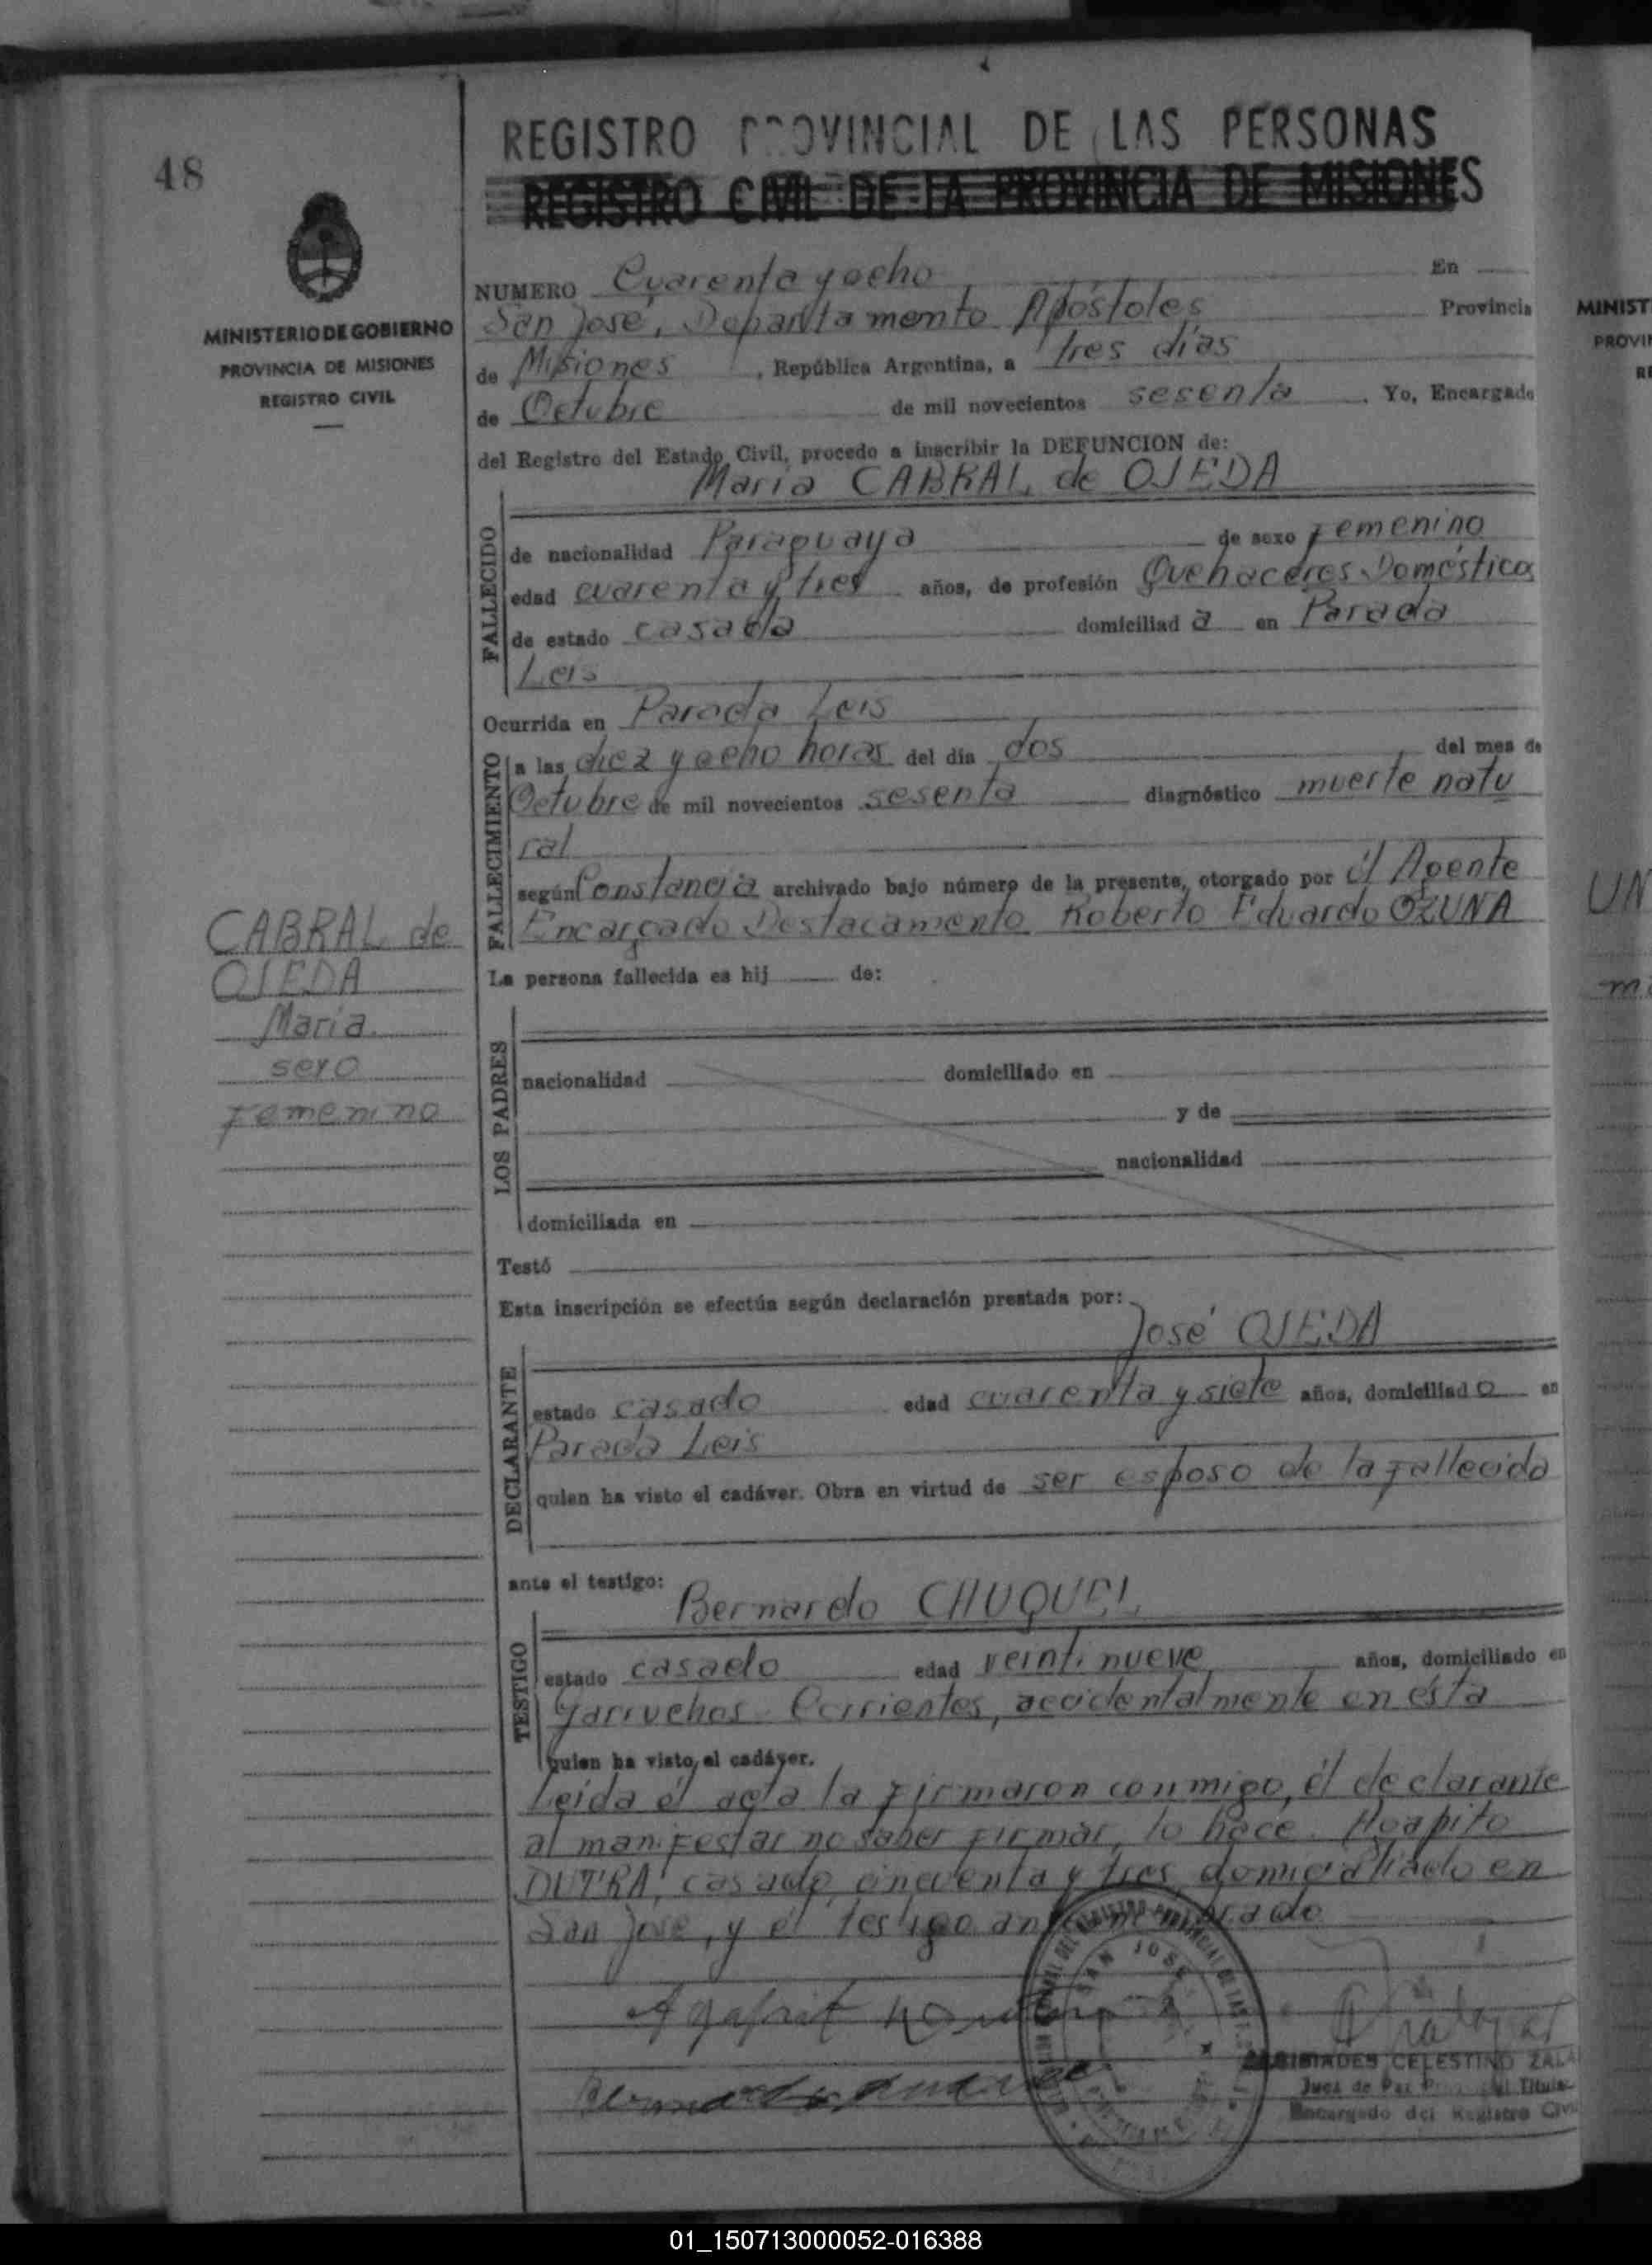 48
REGISTRO PROVINCIAL DE LAS PERSONAS
REGISTRO CIVIL DE LA PROVINCIA DE MISIONES
MINISTERIO DE GOBIERNO
PROVINCIA DE MISIONES
REGISTRO CIVIL
NUMERO Cuarenta y ocho En
San José, Departamento Apóstoles Provincia
de Misiones, República Argentina, a tres días
de Octubre de mil novecientos sesenta. Yo, Encargado
del Registro del Estado Civil, procedo a inscribir la DEFUNCION de:
María CABRAL de OJEDA
FALLECIDO
de nacionalidad Paraguaya de sexo Femenino
edad cuarenta y tres años, de profesión Quehaceres Domésticos
de estado casada domiciliad a en Parada
Leis
Ocurrida en Parada Leis
FALLECIMIENTO
a las diez y ocho horas del día dos del mes de
Octubre de mil novecientos sesenta diagnóstico muerte natu
ral
según Constancia archivado bajo número de la presente, otorgado por él Agente
Encargado Destacamento Roberto Eduardo OZUNA
CABRAL de
OJEDA
María
sexo
Femenino
La persona fallecida es hij de:
LOS PADRES
nacionalidad domiciliado en
y de
nacionalidad
domiciliada en
Testó
Esta inscripción se efectúa según declaración prestada por:
José OJEDA
DECLARANTE
estado casado edad cuarenta y siete años, domiciliad o en
Parada Leis
quien ha visto el cadáver. Obra en virtud de ser esposo de la fallecida
ante el testigo:
Bernardo CHUQUEL
TESTIGO
estado casado edad veintinueve años, domiciliado en
Garruchos Corrientes, accidentalmente en ésta
quien ha visto el cadáver.
Leida él acta la firmaron conmigo, él declarante
al manifestar no saber firmar, lo hace Agapito
DUTRA, casado, cincuenta y tres, domiciliado en
San José, y él testigo antes nombrado
SAN JOSE
CELESTINO ZALA
Juez de Paz Titular
Encargado del Registro Civil
MINIST
PROVIN
RE
UN
01_150713000052-016388